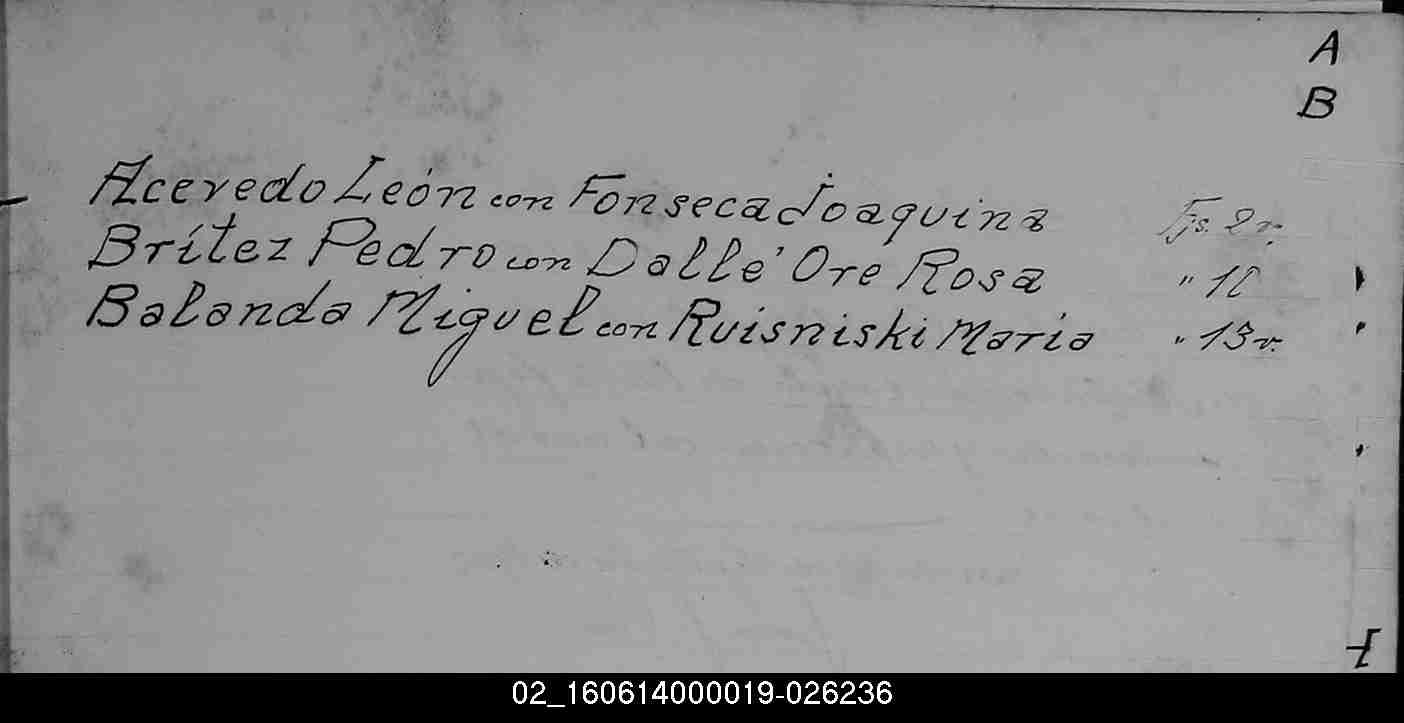 A
B
Acevedo León con Fonseca Joaquina Fjs. 2 v.
Brítez Pedro con Dalle' Ore Rosa " 
Balanda Miguel con Ruisniski Maria " 13 v.
02_160614000019-026236